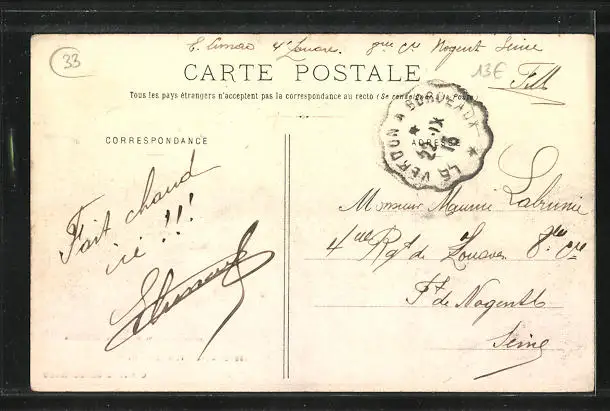 33
4e Zouave. 8me Cie Nogent Seine
13€
CARTE POSTALE
Tous les pays étrangers n'acceptent pas la correspondance au recto (Se renseigner à la Poste)
LE VERDON A BORDEAUX
22 -IX
15
CORRESPONDANCE
ADRESSE
Fait chaud
ici !!!
Monsieur Maurice Labrunie
4me Rgt de Zouaves 8me Cie
Ft de Nogent s
Seine